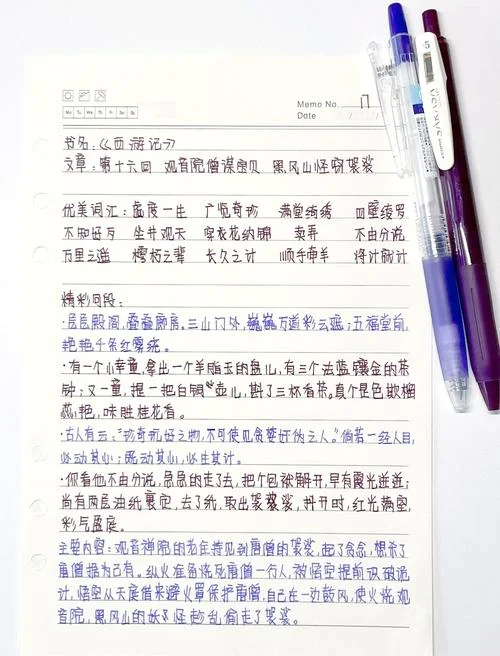 Memo No. 17
Mo Tu We Th Fr Sa Su
Date / /
书名:《西游记》
文章:第十六回 观音院僧谋宝贝 黑风山怪窃袈裟
优美词汇:虚度一生 广览奇珍 满堂绮绣 四壁绫罗
不知好歹 坐井观天 穿花纳锦 卖弄 不由分说
万里之遥 樗朽之辈 长久之计 顺手牵羊 将计就计
精彩句段:
·层层殿阁,叠叠廊房。三山门外,巍巍万道彩云遮;五福堂前,
艳艳千条红雾绕。
·有一个小幸童,拿出一个羊脂玉的盘儿,有三个法蓝镶金的茶
钟;又一童,提一把白铜壶儿,斟了三杯香茶。真个是色欺榴
蕊艳,味胜桂花香。
·古人有云:"珍奇玩好之物,不可使见贪婪奸伪之人。"倘若一经人目,
必动其心;既动其心,必生其计。
·你看他不由分说,急急的走了去,把个包袱解开,早有霞光迸迸;
尚有两层油纸裹定,去了纸,取出袈裟,抖开时,红光满室,
彩气盈庭。
主要内容:观音禅院的老住持见到唐僧的袈裟,起了贪念,想将了
唐僧据为己有。纵火准备烧死唐僧一行人,被悟空提前识破诡
计,悟空从天庭借来避火罩保护唐僧,自己在一边鼓风,使火烧观
音院,黑风山的妖怪趁乱偷走了袈裟。